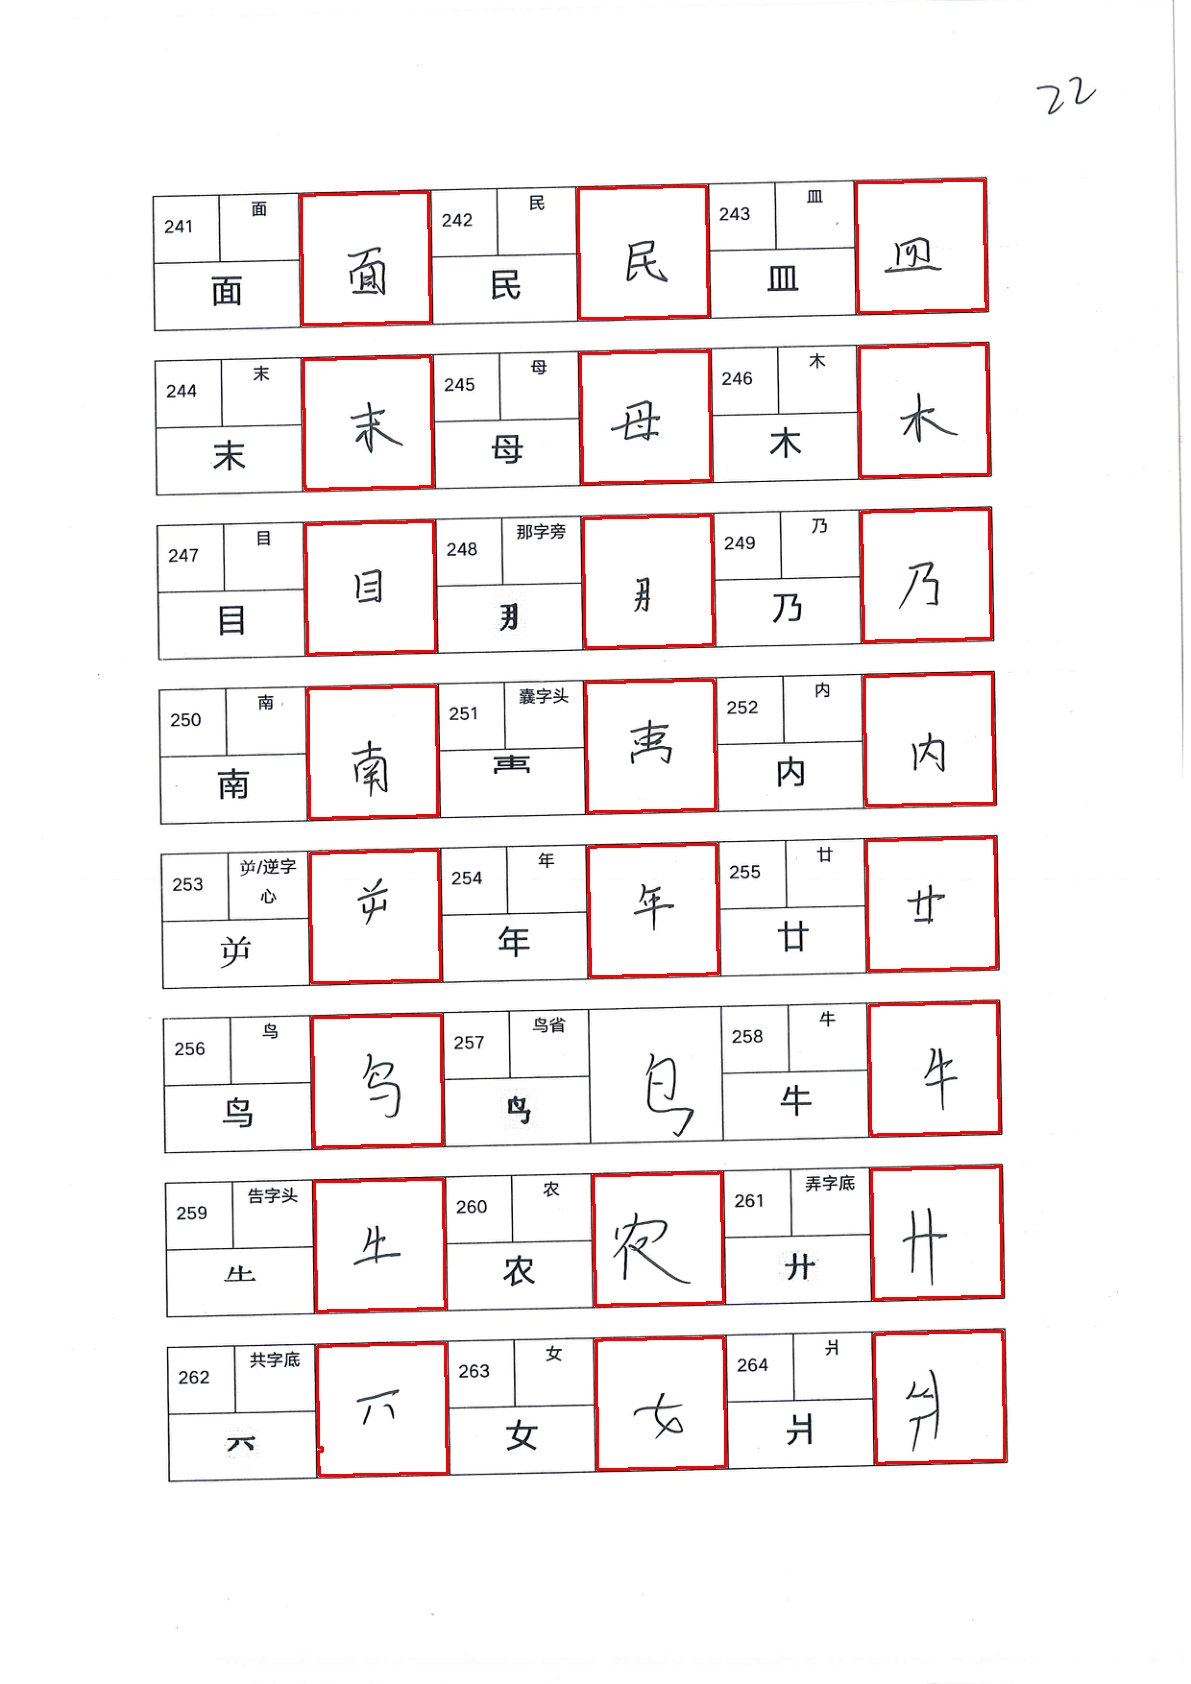 22
241 面 面 面 242 民 民 民 243 皿 皿 皿
244 末 末 末 245 母 母 母 246 木 木 木
247 目 目 目 248 那字旁 249 乃 乃 乃
250 南 南 南 251 囊字头 252 内 内 内
253 屰/逆字心 屰 屰 254 年 年 年 255 廿 廿 廿
256 鸟 鸟 鸟 257 鸟省 258 牛 牛 牛
259 告字头 260 农 农 农 261 弄字底 廾 廾
262 共字底 263 女 女 女 264